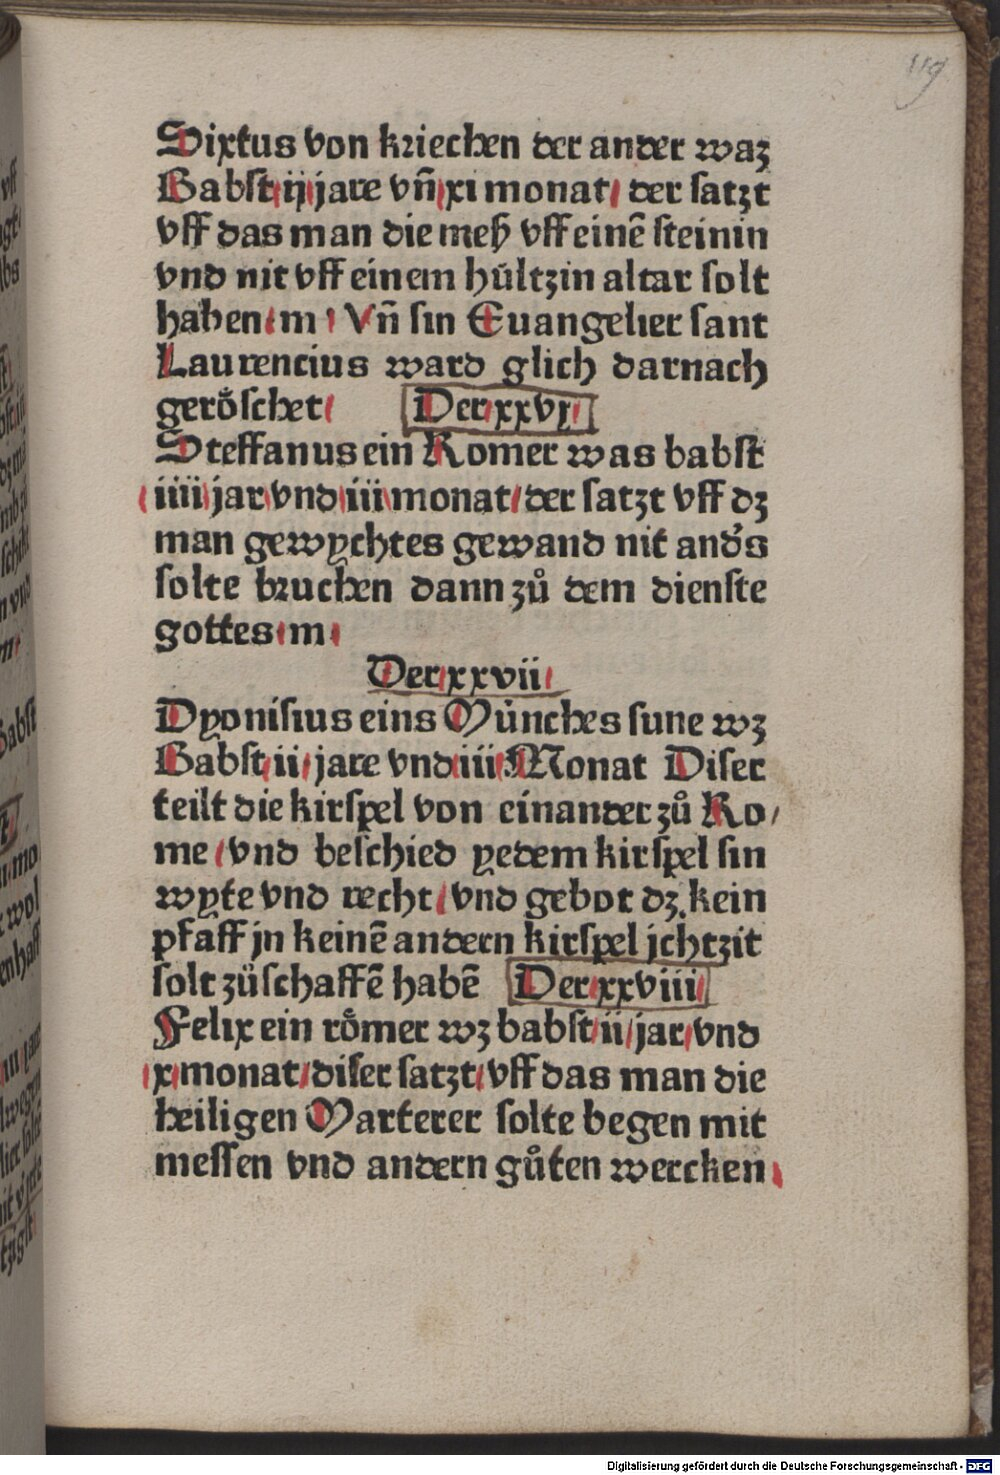 119
Sixtus von kriechen der ander waz
Babst ij jare vn̄ xi monat / der satzt
vff das man die meß vff einē steinin
vnd nit vff einem hültzin altar solt
haben m Vn̄ sin Euangelier sant
Laurencius ward glich darnach
geröschet / Der xxvj
Steffanus ein Romer was babst
iiii jar vnd iii monat / der satzt vff dz
man gewychtes gewand nit anders
solte bruchen dann zů dem dienste
gottes m
Der xxvii
Dyonisius eins Münches sune wz
Babst ii / jare vnd iii Monat Diser
teilt die kirspel von einander zů Ro/
me / vnd beschied yedem kirspel sin
wyte vnd recht / vnd gebot dz kein
pfaff jn keinē andern kirspel jchtzit
solt züschaffē habē Der xxviii
Felix ein rőmer wz babst ii / jar vnd
x monat / diser satzt / vff das man die
heiligen Marterer solte begen mit
messen vnd andern gůten wercken
Digitalisierung gefördert durch die Deutsche Forschungsgemeinschaft - DFG